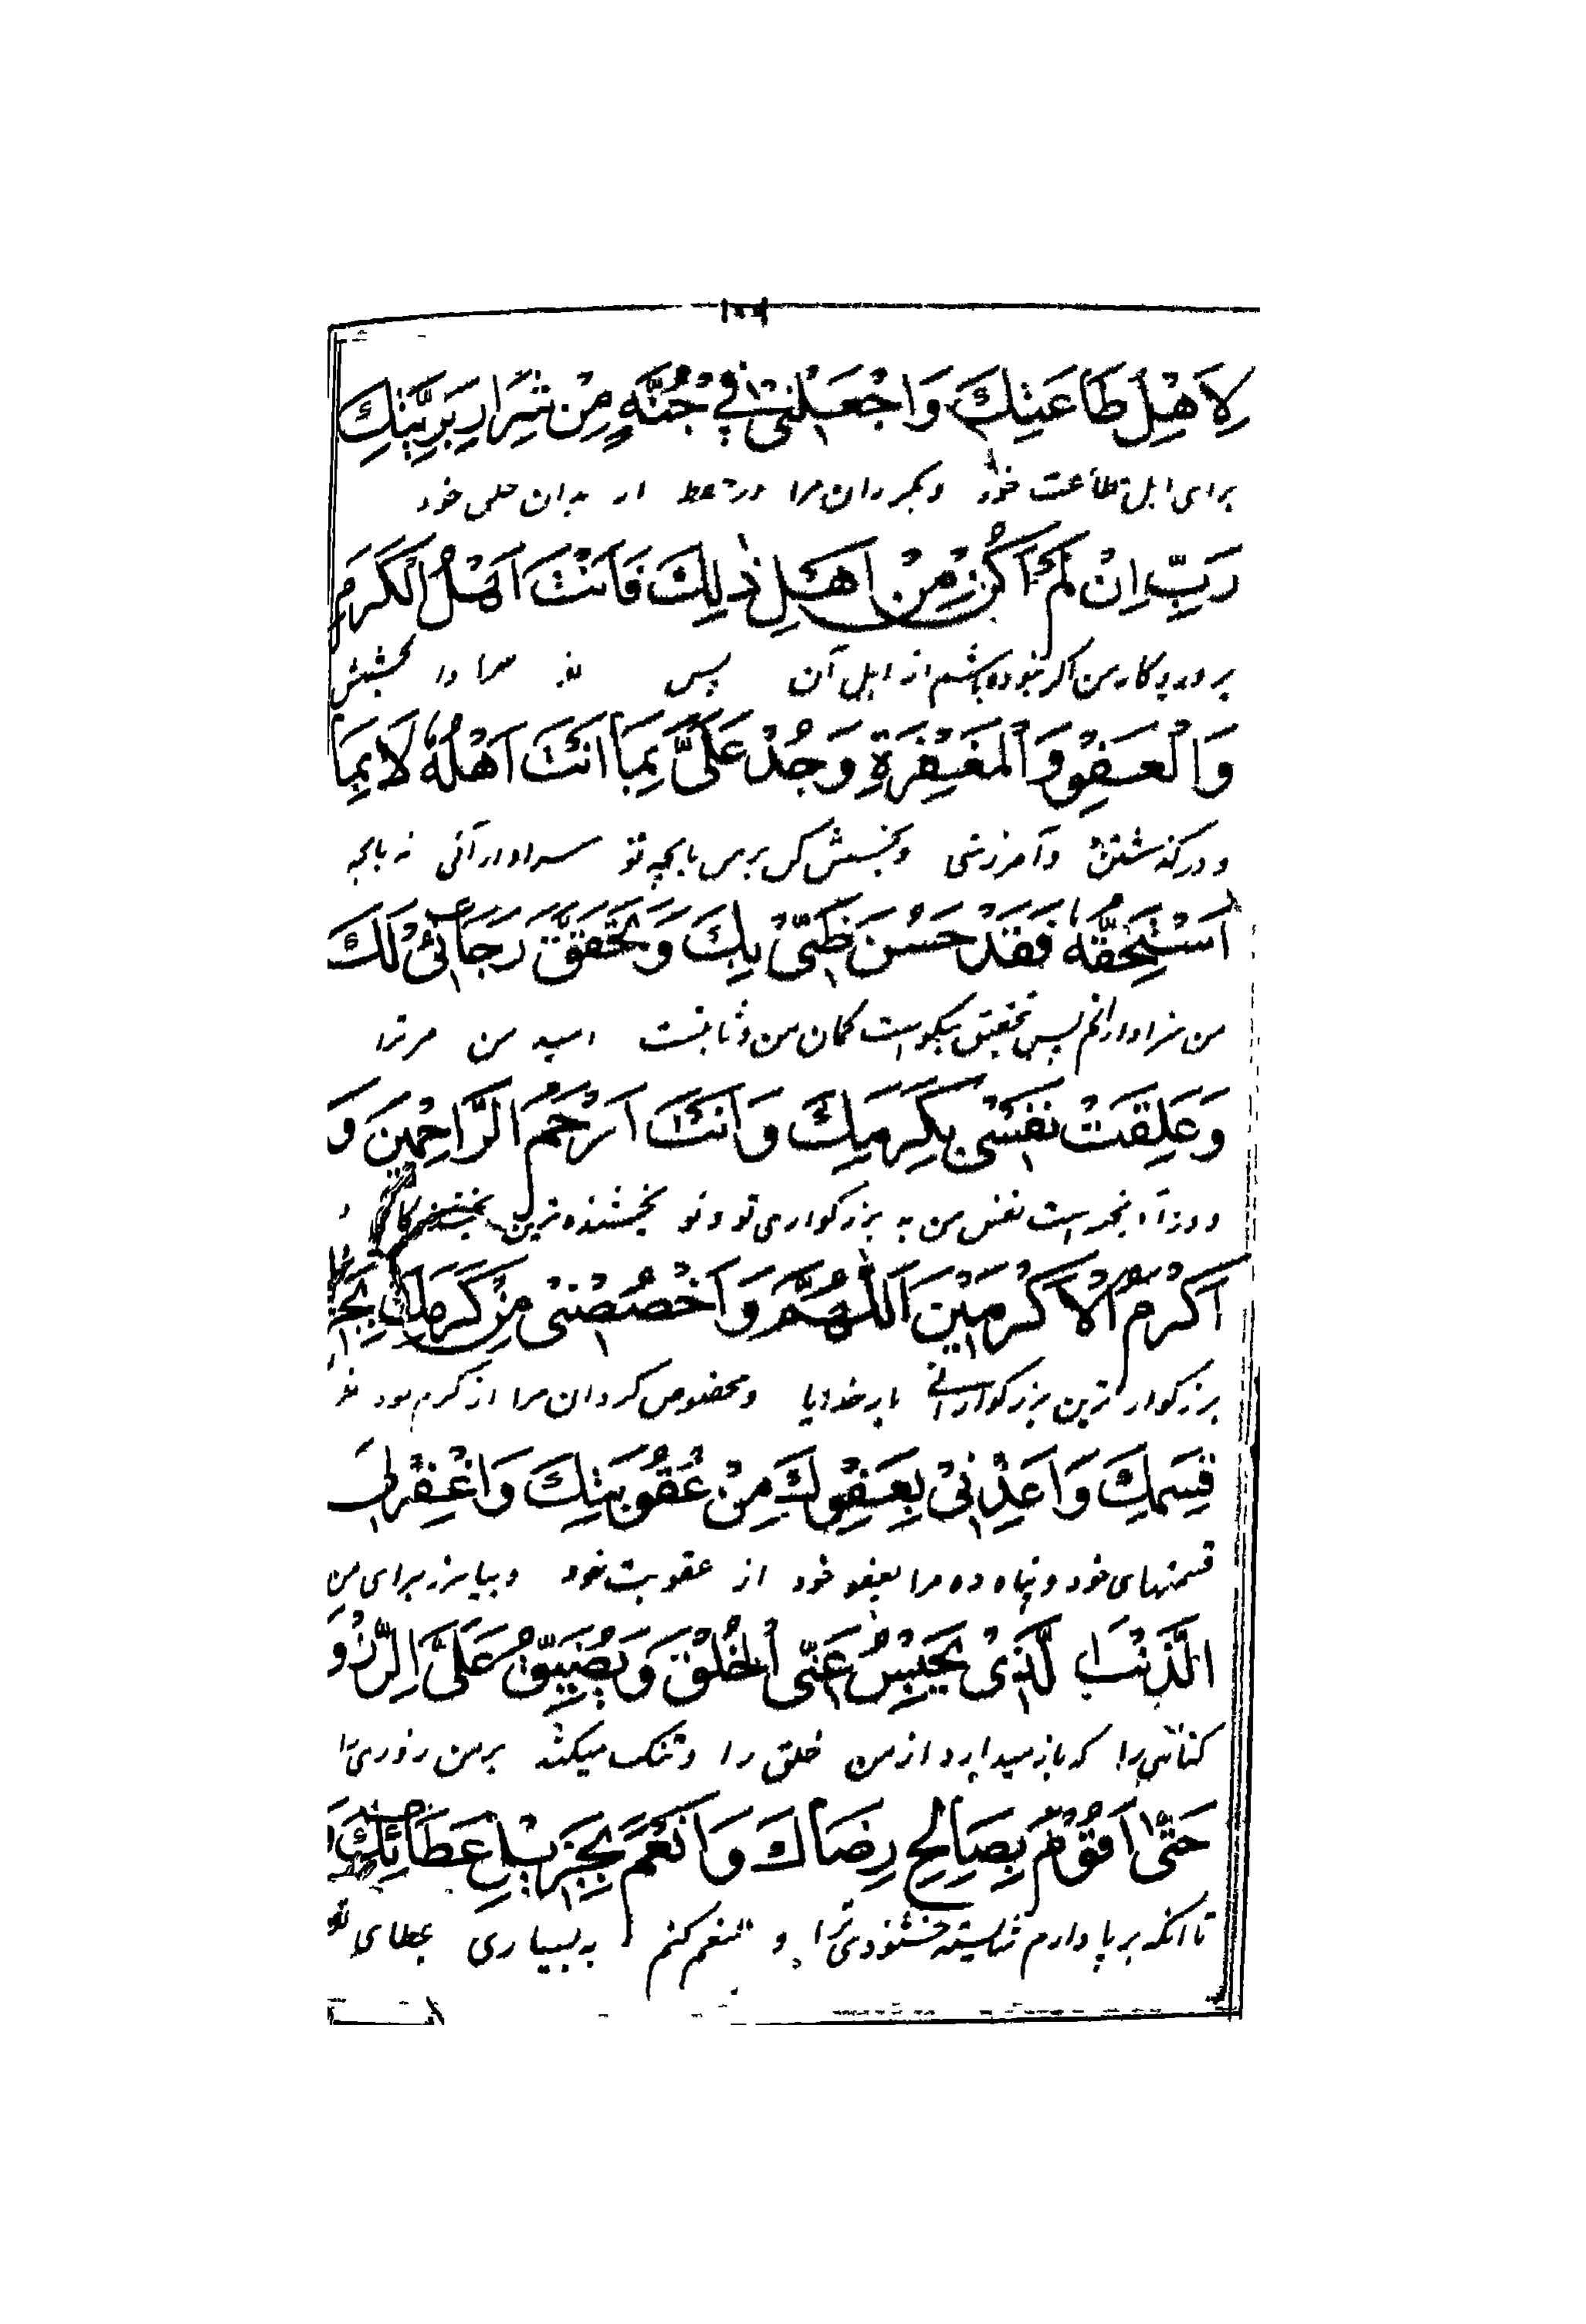 لِاَهْلِ طَاعَتِكَ وَاجْعَلْنِي فِي جُنَّةٍ مِنْ شِرَارِ بَرِيَّتِكَ
برای اهل طاعت خود و بگردان مرا در از بدان خلق خود
رَبِّ اِنْ لَمْ اَكُنْ مِنْ اَهْلِ ذٰلِكَ فَاَنْتَ اَهْلُ الْكَرَمِ
پروردگار من اگر نبوده باشم از اهل آن پس تو بخشش
وَالْعَفْوِ وَالْمَغْفِرَةِ وَجُدْ عَلَيَّ بِمَا اَنْتَ اَهْلُهُ لَا بِمَا
و درگذشتن و آمرزشی و بخشش کن بر من بانچه تو سزاوار آنی نه بانچه
اَسْتَحِقُّهُ فَقَدْ حَسُنَ ظَنِّي بِكَ وَتَحَقَّقَ رَجَائِي لَكَ
من سزاوار انم پس بتحقیق نیکو است گمان من و ثابتست امید من مر ترا
وَعَلِقَتْ نَفْسِي بِكَرَمِكَ وَاَنْتَ اَرْحَمُ الرَّاحِمِينَ وَ
است نفس من به بزرگواری تو و تو بخشنده ترین
اَكْرَمُ الْاَكْرَمِينَ اَللّٰهُمَّ وَاخْصُصْنِي مِنْ كَرَمِكَ
بزرگوار ترین بزرگوارانی بار خدایا و مخصوص گردان مرا از کرم خود
قِسَمِكَ وَاَعِذْنِي بِعَفْوِكَ مِنْ عُقُوبَتِكَ وَاغْفِرْ لِيَ
قسمتهای خود و پناه ده مرا بعفو خود از عقوبت خود و بیامرز برای من
الذَّنْبَ الَّذِي يَحْبِسُ عَنِّي الْخُلُقَ وَيُضَيِّقُ عَلَيَّ الرِّزْقَ
گناهی را که باز میدارد از من خلق را و تنگ میکند بر من روزی را
حَتّٰى اَقُومَ بِصَالِحِ رِضَاكَ وَاَنْعَمَ بِجَزِيلِ عَطَائِكَ
تا انکه بر پا دارم شایسته خشنودی ترا و تنعم کنم به بسیاری عطای تو